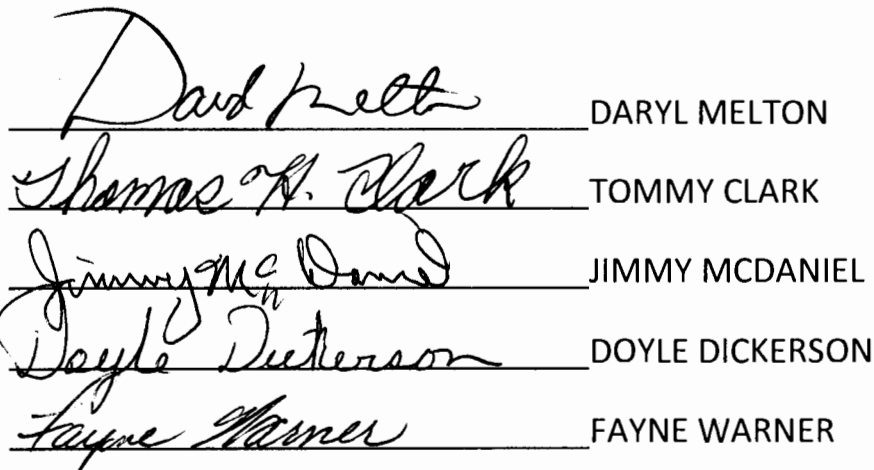 David Melton DARYL MELTON
Thomas H. Clark TOMMY CLARK
Jimmy McDaniel JIMMY MCDANIEL
Doyle Dickerson DOYLE DICKERSON
Fayne Warner FAYNE WARNER